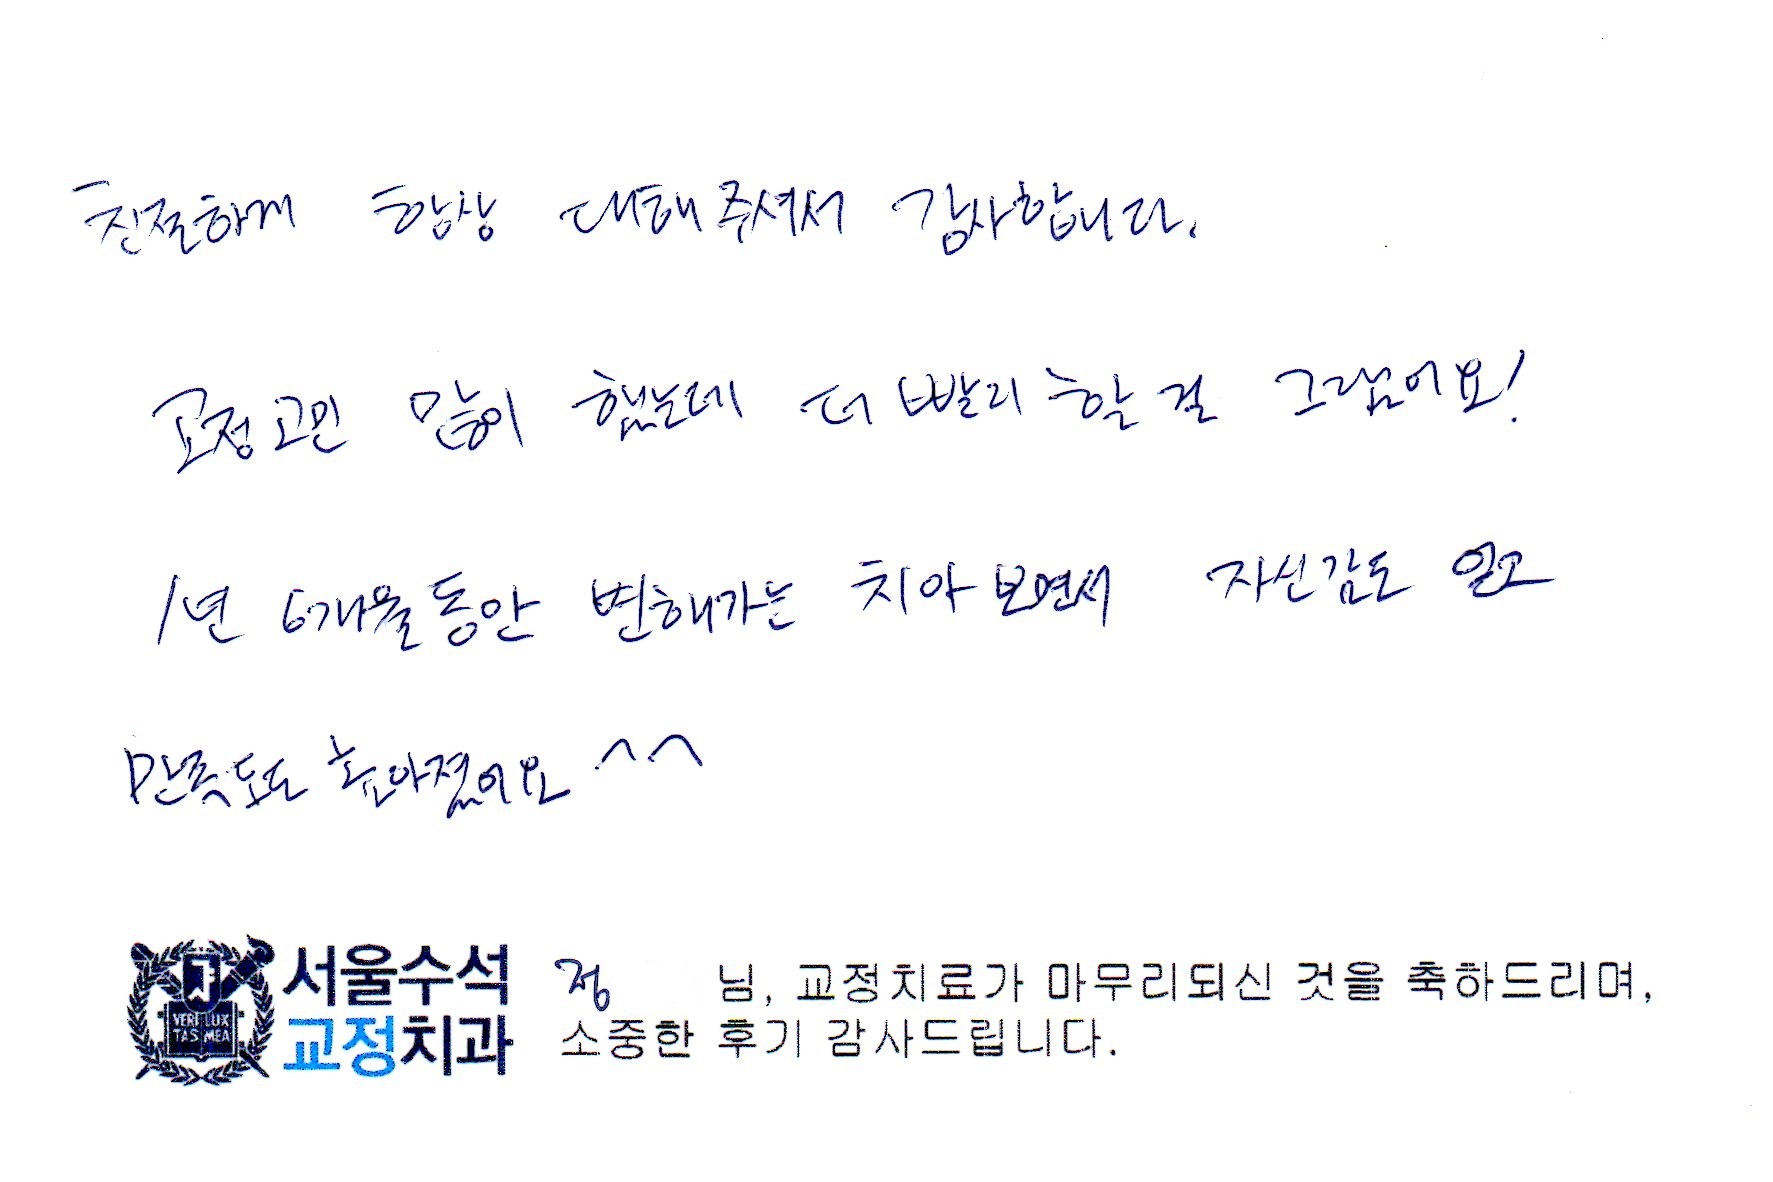 친절하게 항상 대해주셔서 감사합니다.
교정고민 많이 했는데 더 빨리 할걸 그랬어요!
1년 6개월동안 변해가는 치아 보면서 자신감도 얻고
만족도도 높아졌어요 ^^
VERI LUX
TAS MEA
서울수석
교정치과
정 님, 교정치료가 마무리되신 것을 축하드리며,
소중한 후기 감사드립니다.